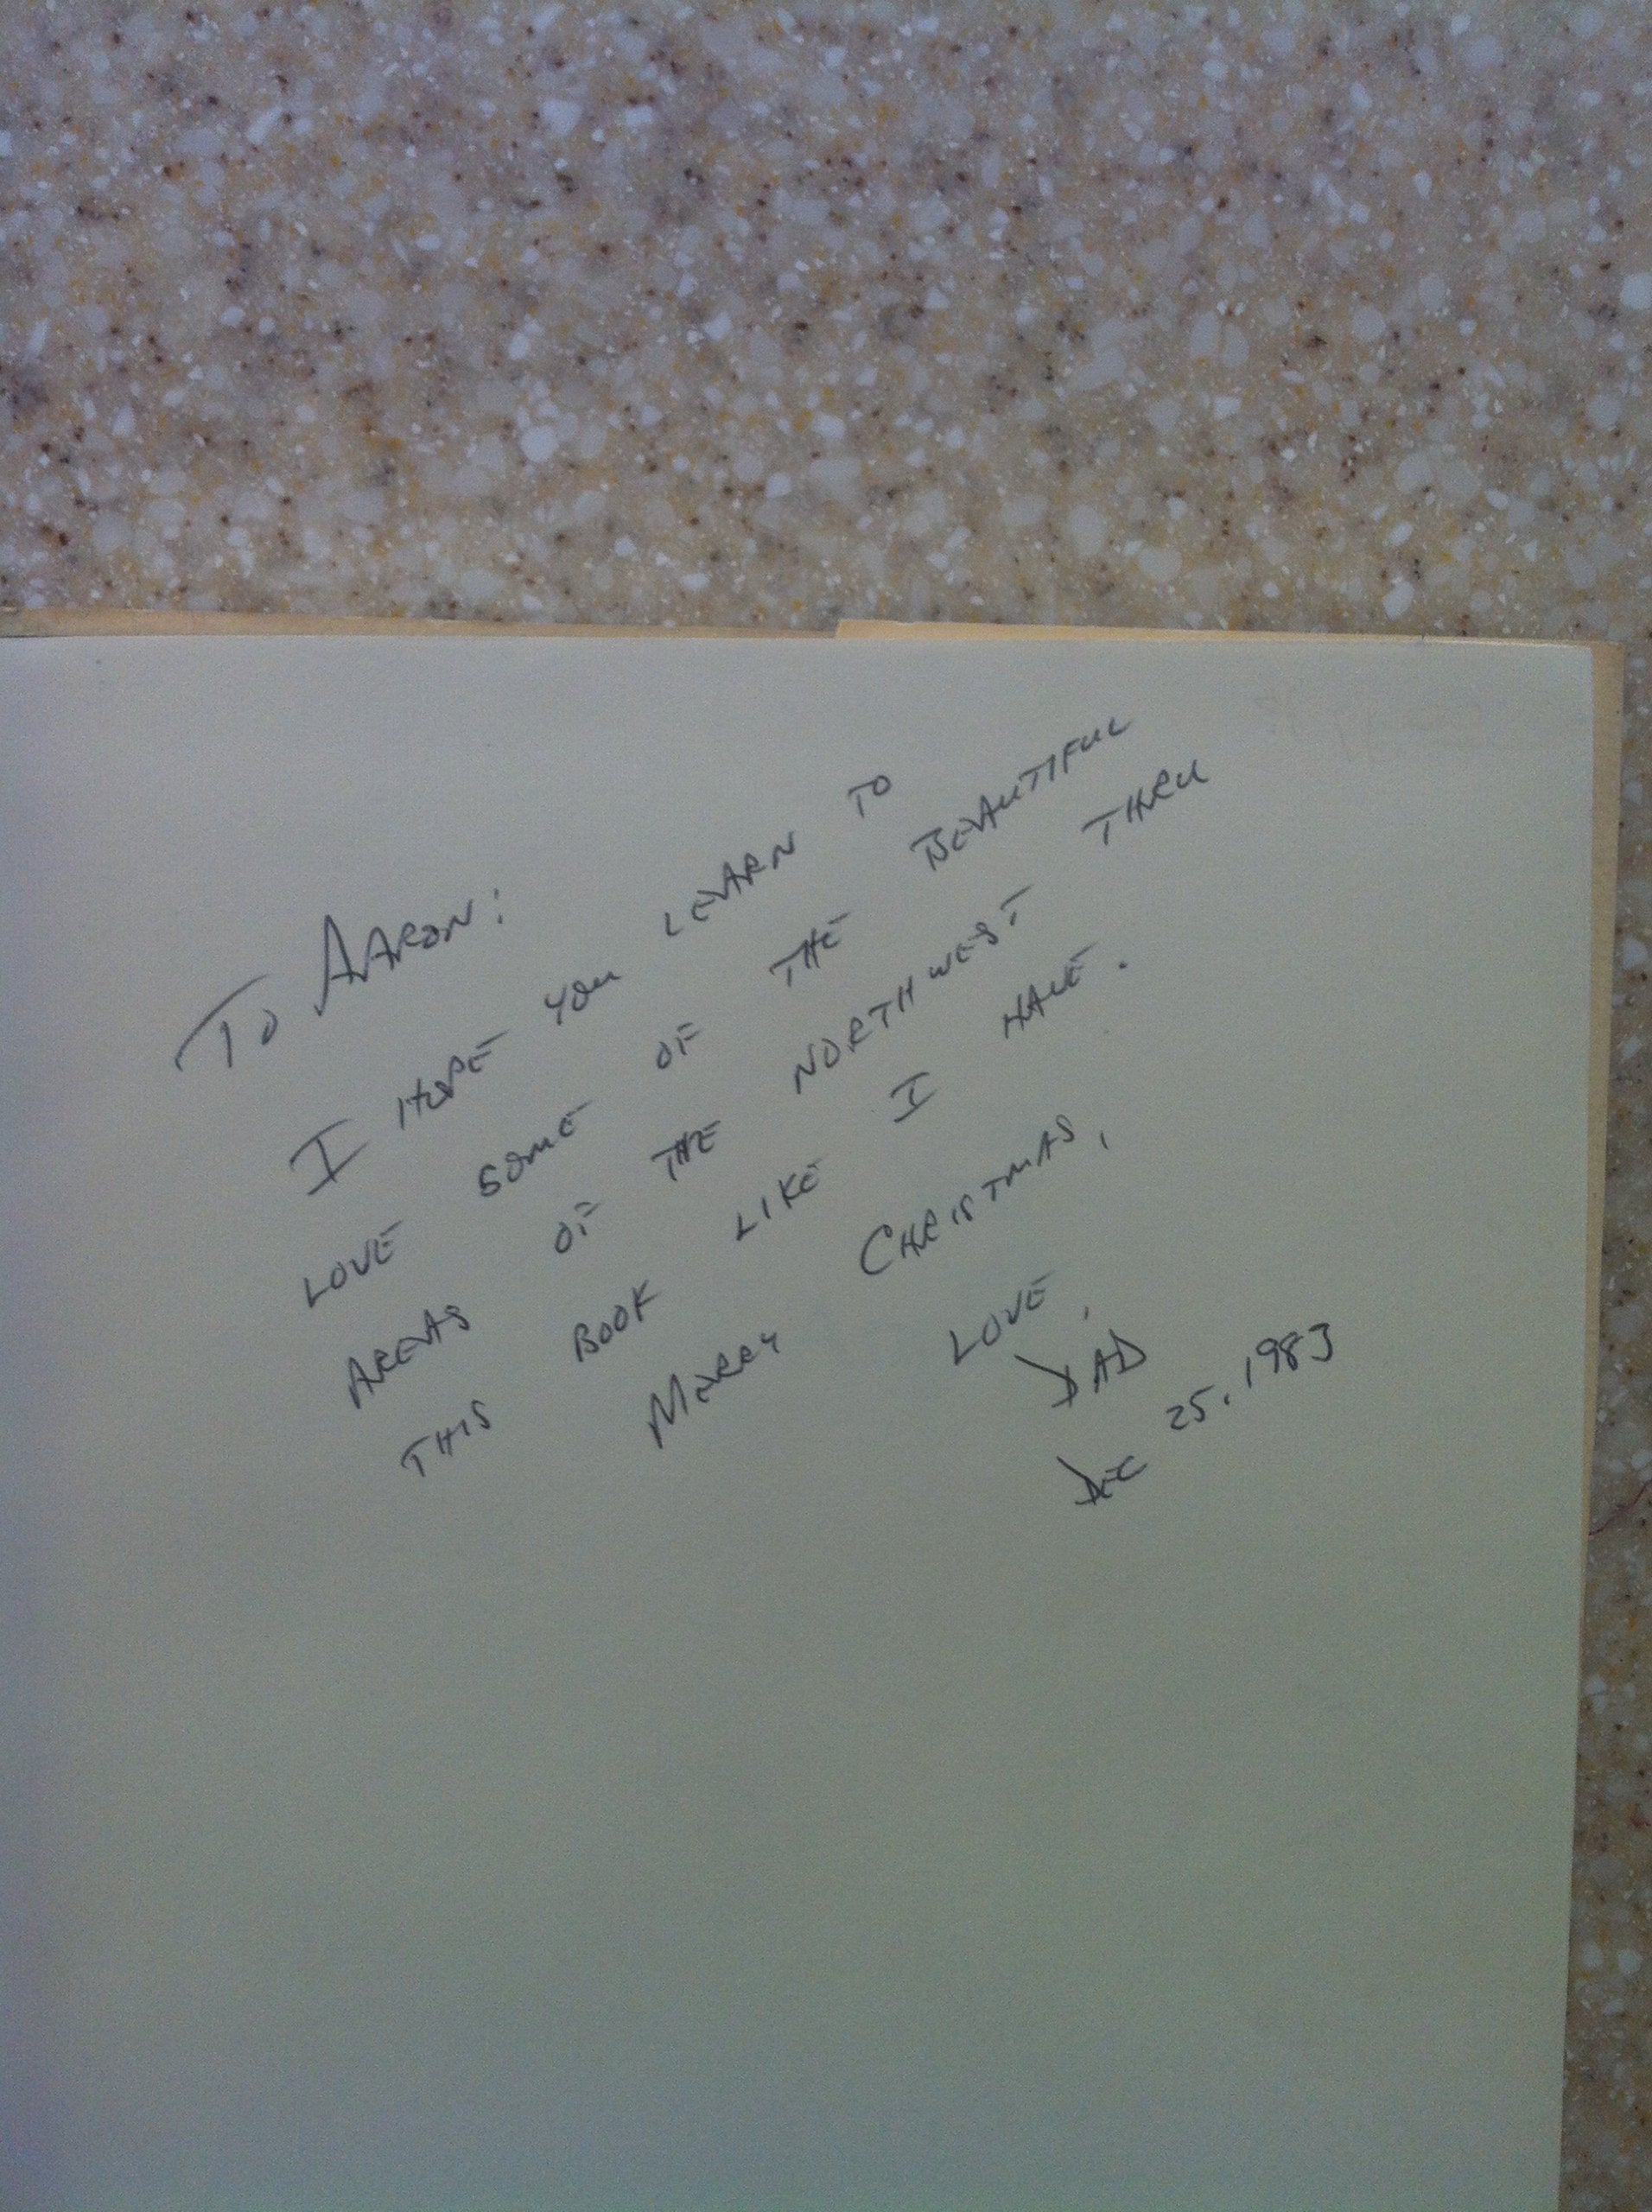 To AARON:
I HOPE YOU LEARN TO
LOVE SOME OF THE BEAUTIFUL
AREAS OF THE NORTHWEST THRU
THIS BOOK LIKE I HAVE.
MERRY CHRISTMAS,
LOVE,
DAD
DEC 25, 1983